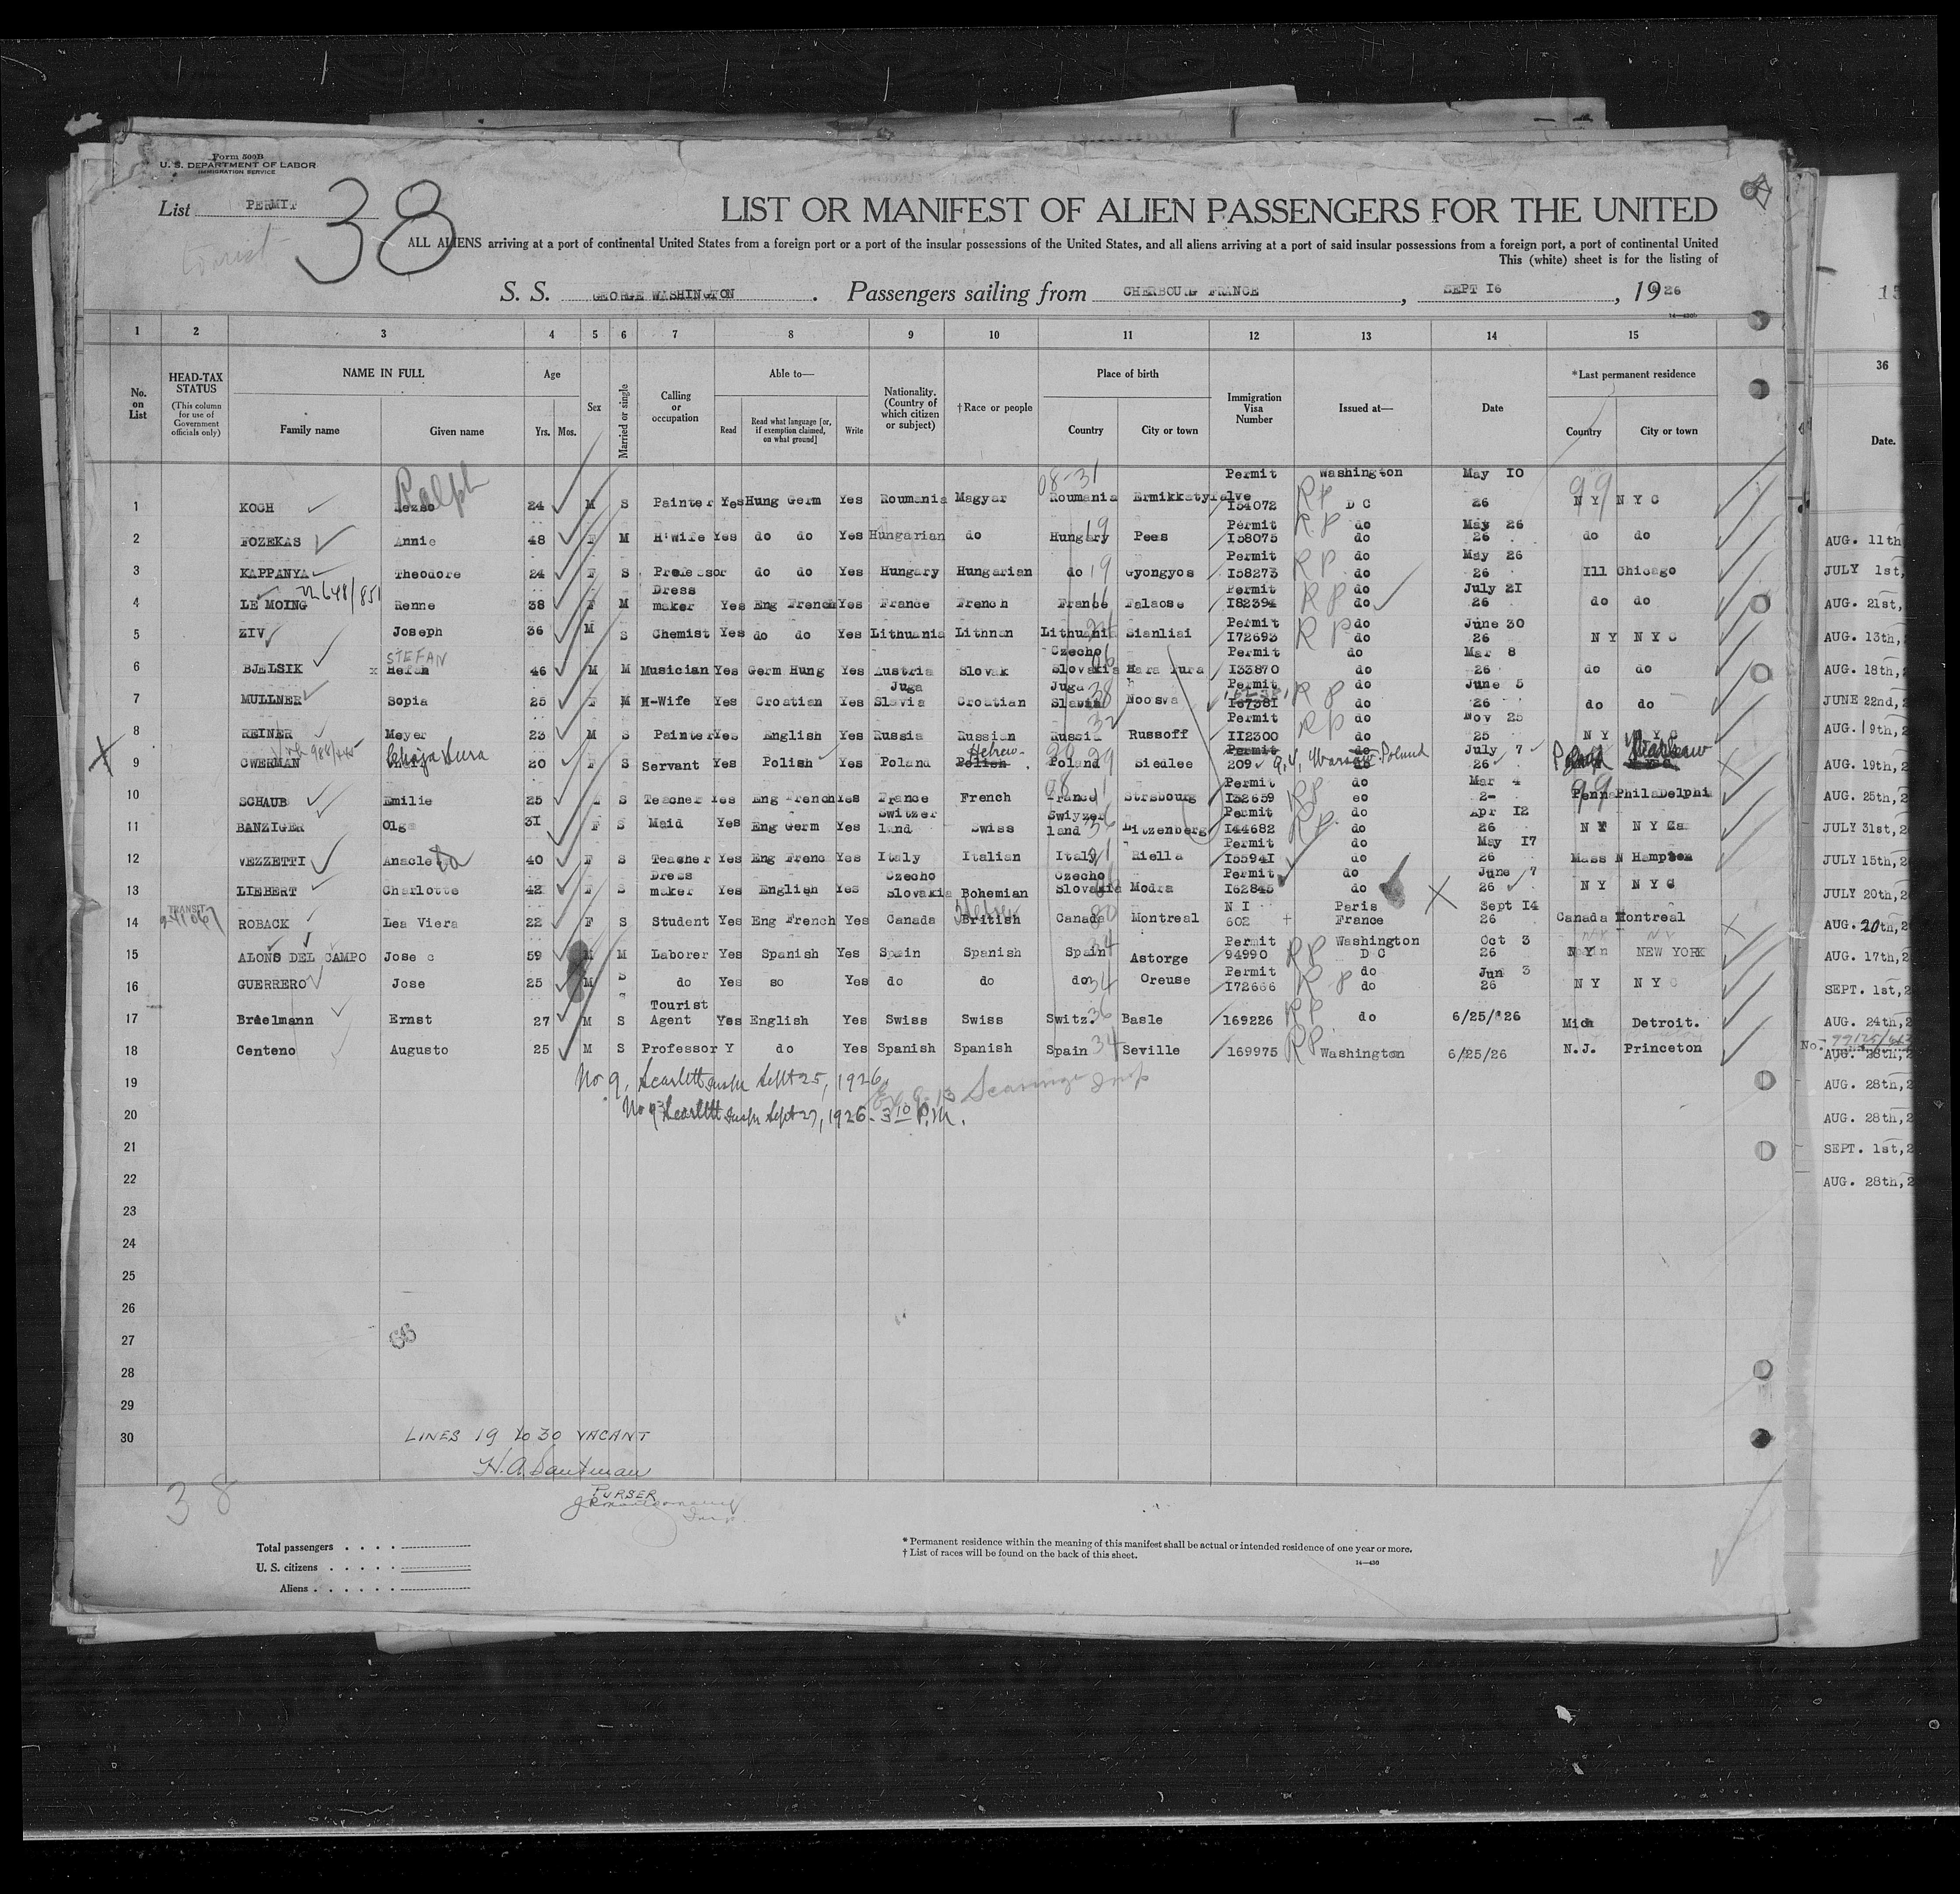 Form 500B
U. S. DEPARTMENT OF LABOR
IMMIGRATION SERVICE
List PERMIT
38
LIST OR MANIFEST OF ALIEN PASSENGERS FOR THE UNITED
ALL ALIENS arriving at a port of continental United States from a foreign port or a port of the insular possessions of the United States, and all aliens arriving at a port of said insular possessions from a foreign port, a port of continental United
This (white) sheet is for the listing of
S. S. GEORGE WASHINGTON. Passengers sailing from CHERBOURG FRANCE, SEPT I6, 1926
1 2 3 4 5 6 7 8 9 10 11 12 13 14 15 36
No. on List
HEAD-TAX STATUS
(This column for use of Government officials only)
NAME IN FULL
Family name Given name
Age
Yrs. Mos.
Sex
Married or single
Calling or occupation
Able to—
Read Read what language [or, if exemption claimed, on what ground] Write
Nationality. (Country of which citizen or subject)
†Race or people
Place of birth
Country City or town
Immigration Visa Number
Issued at—
Date
*Last permanent residence
Country City or town
Date.
1 KOCH Ralph 24 M S Painter Yes Hung Germ Yes Roumania Magyar Roumania 08-31 Permit I54072 RP Washington D C May I0 26 99 N Y N Y C
2 FOZEKAS Annie 48 F M H-Wife Yes do do Yes Hungarian do Hungary 19 Pees Permit I58075 RP do do May 26 26 do do AUG. 11th
3 KAPPANYA Theodore 24 F S Professor do do Yes Hungary Hungarian do 19 Gyongyos Permit I58273 RP do May 26 26 Ill Chicago JULY 1st,
4 LE MOING Renne 38 F M Dress maker Yes Eng French Yes France French France Falaose Permit I82394 RP do July 2I 26 do do AUG. 21st,
5 ZIV Joseph 36 M S Chemist Yes do do Yes Lithuania Lithnan Lithuania Sianliai Permit I72693 RP do June 30 26 N Y N Y C AUG. 13th,
6 BJELSIK STEFAN 46 M M Musician Yes Germ Hung Yes Austria Slovak Czecho Slovakia Permit I33870 do do Mar 8 26 do do AUG. 18th,
7 MULLNER Sopia 25 F M H-Wife Yes Croatian Yes Juga Slavia Croatian Juga Slavia 38 Noosva Permit I6738I RP do June 5 26 do do JUNE 22nd,
8 REINER Meyer 23 M S Painter Yes English Yes Russia Russian Russia 32 Russoff Permit II2300 RP do Nov 25 25 N Y N Y C AUG. 19th,
9 CWERMAN 20 F S Servant Yes Polish Yes Poland Polish Hebrew Poland 29 Siedlee Permit 209 Warsaw Poland July 7 26 Warsaw AUG. 19th,
10 SCHAUB Emilie 25 S Teacher Yes Eng French Yes France French France Strsbourg Permit I52659 RP do Mar 4 Penna PhilaDelphi AUG. 25th,
11 BANZIGER Olga 3I F S Maid Yes Eng Germ Yes Switzer land Swiss Swiyzer land 36 Litzenberg Permit I44682 RP do Apr I2 26 N Y JULY 31st,
12 VEZZETTI Anacleta 40 F S Teacher Yes Eng Frenc Yes Italy Italian Italy Riella Permit I5594I do May I7 26 Mass N Hampton JULY 15th,
13 LIEBERT Charlotte 42 F S Dress maker Yes English Yes Czecho Slovakia Bohemian Czecho Slovakia Modra Permit I62845 do do June 7 26 N Y N Y C JULY 20th,
14 TRANSIT ROBACK Lea Viera 22 F S Student Yes Eng French Yes Canada British Hebrew Canada 80 Montreal N I 602 Paris France Sept I4 26 Canada Montreal AUG. 20th,
15 ALONS DEL CAMPO Jose c 59 M M Laborer Yes Spanish Yes Spain Spanish Spain 34 Astorge Permit 94990 RP Washington D C Oct 3 26 N Y NEW YORK AUG. 17th,
16 GUERRERO Jose 25 M S do Yes so Yes do do do 34 Oreuse Permit I72666 RP do do Jun 3 26 N Y N Y C SEPT. 1st,
17 Braelmann Ernst 27 M S Tourist Agent Yes English Yes Swiss Swiss Switz. 36 Basle 169226 RP do 6/25/'26 Mich Detroit. AUG. 24th,
18 Centeno Augusto 25 M S Professor Y do Yes Spanish Spanish Spain 34 Seville 169975 RP Washington 6/25/26 N.J. Princeton AUG. 28th,
19 No 9, Scarlett Insp Sept 25, 1926. AUG. 28th,
20 Scarlett Insp Sept 27, 1926 - 3 10 P.M. AUG. 28th,
21 SEPT. 1st,
22 AUG. 28th,
23
24
25
26
27 66
28
29
30 LINES 19 to 30 VACANT
PURSER
38
Total passengers
U. S. citizens
Aliens
* Permanent residence within the meaning of this manifest shall be actual or intended residence of one year or more.
† List of races will be found on the back of this sheet.
14—430